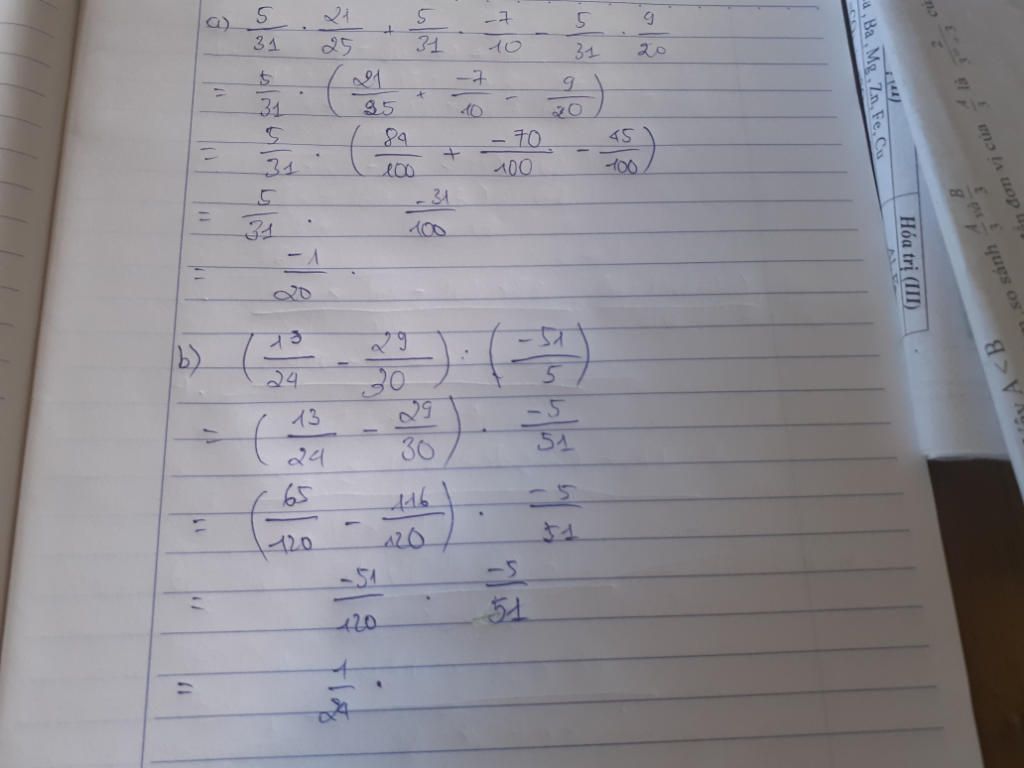 a) 5/31 . 21/25 + 5/31 . -7/10 - 5/31 . 9/20
= 5/31 . (21/25 + -7/10 - 9/20)
= 5/31 . (84/100 + -70/100 - 45/100)
= 5/31 . -31/100
= -1/20 .
b) (13/24 - 29/30) : (-51/5)
= (13/24 - 29/30) . -5/51
= (65/120 - 116/120) . -5/51
= -51/120 . -5/51
= 1/24 .
Ba, Mg, Zn, Fe, Cu
(II)
Hóa trị (III)
so sánh A/3 và B/3
đơn vị của A/3 là
A < B